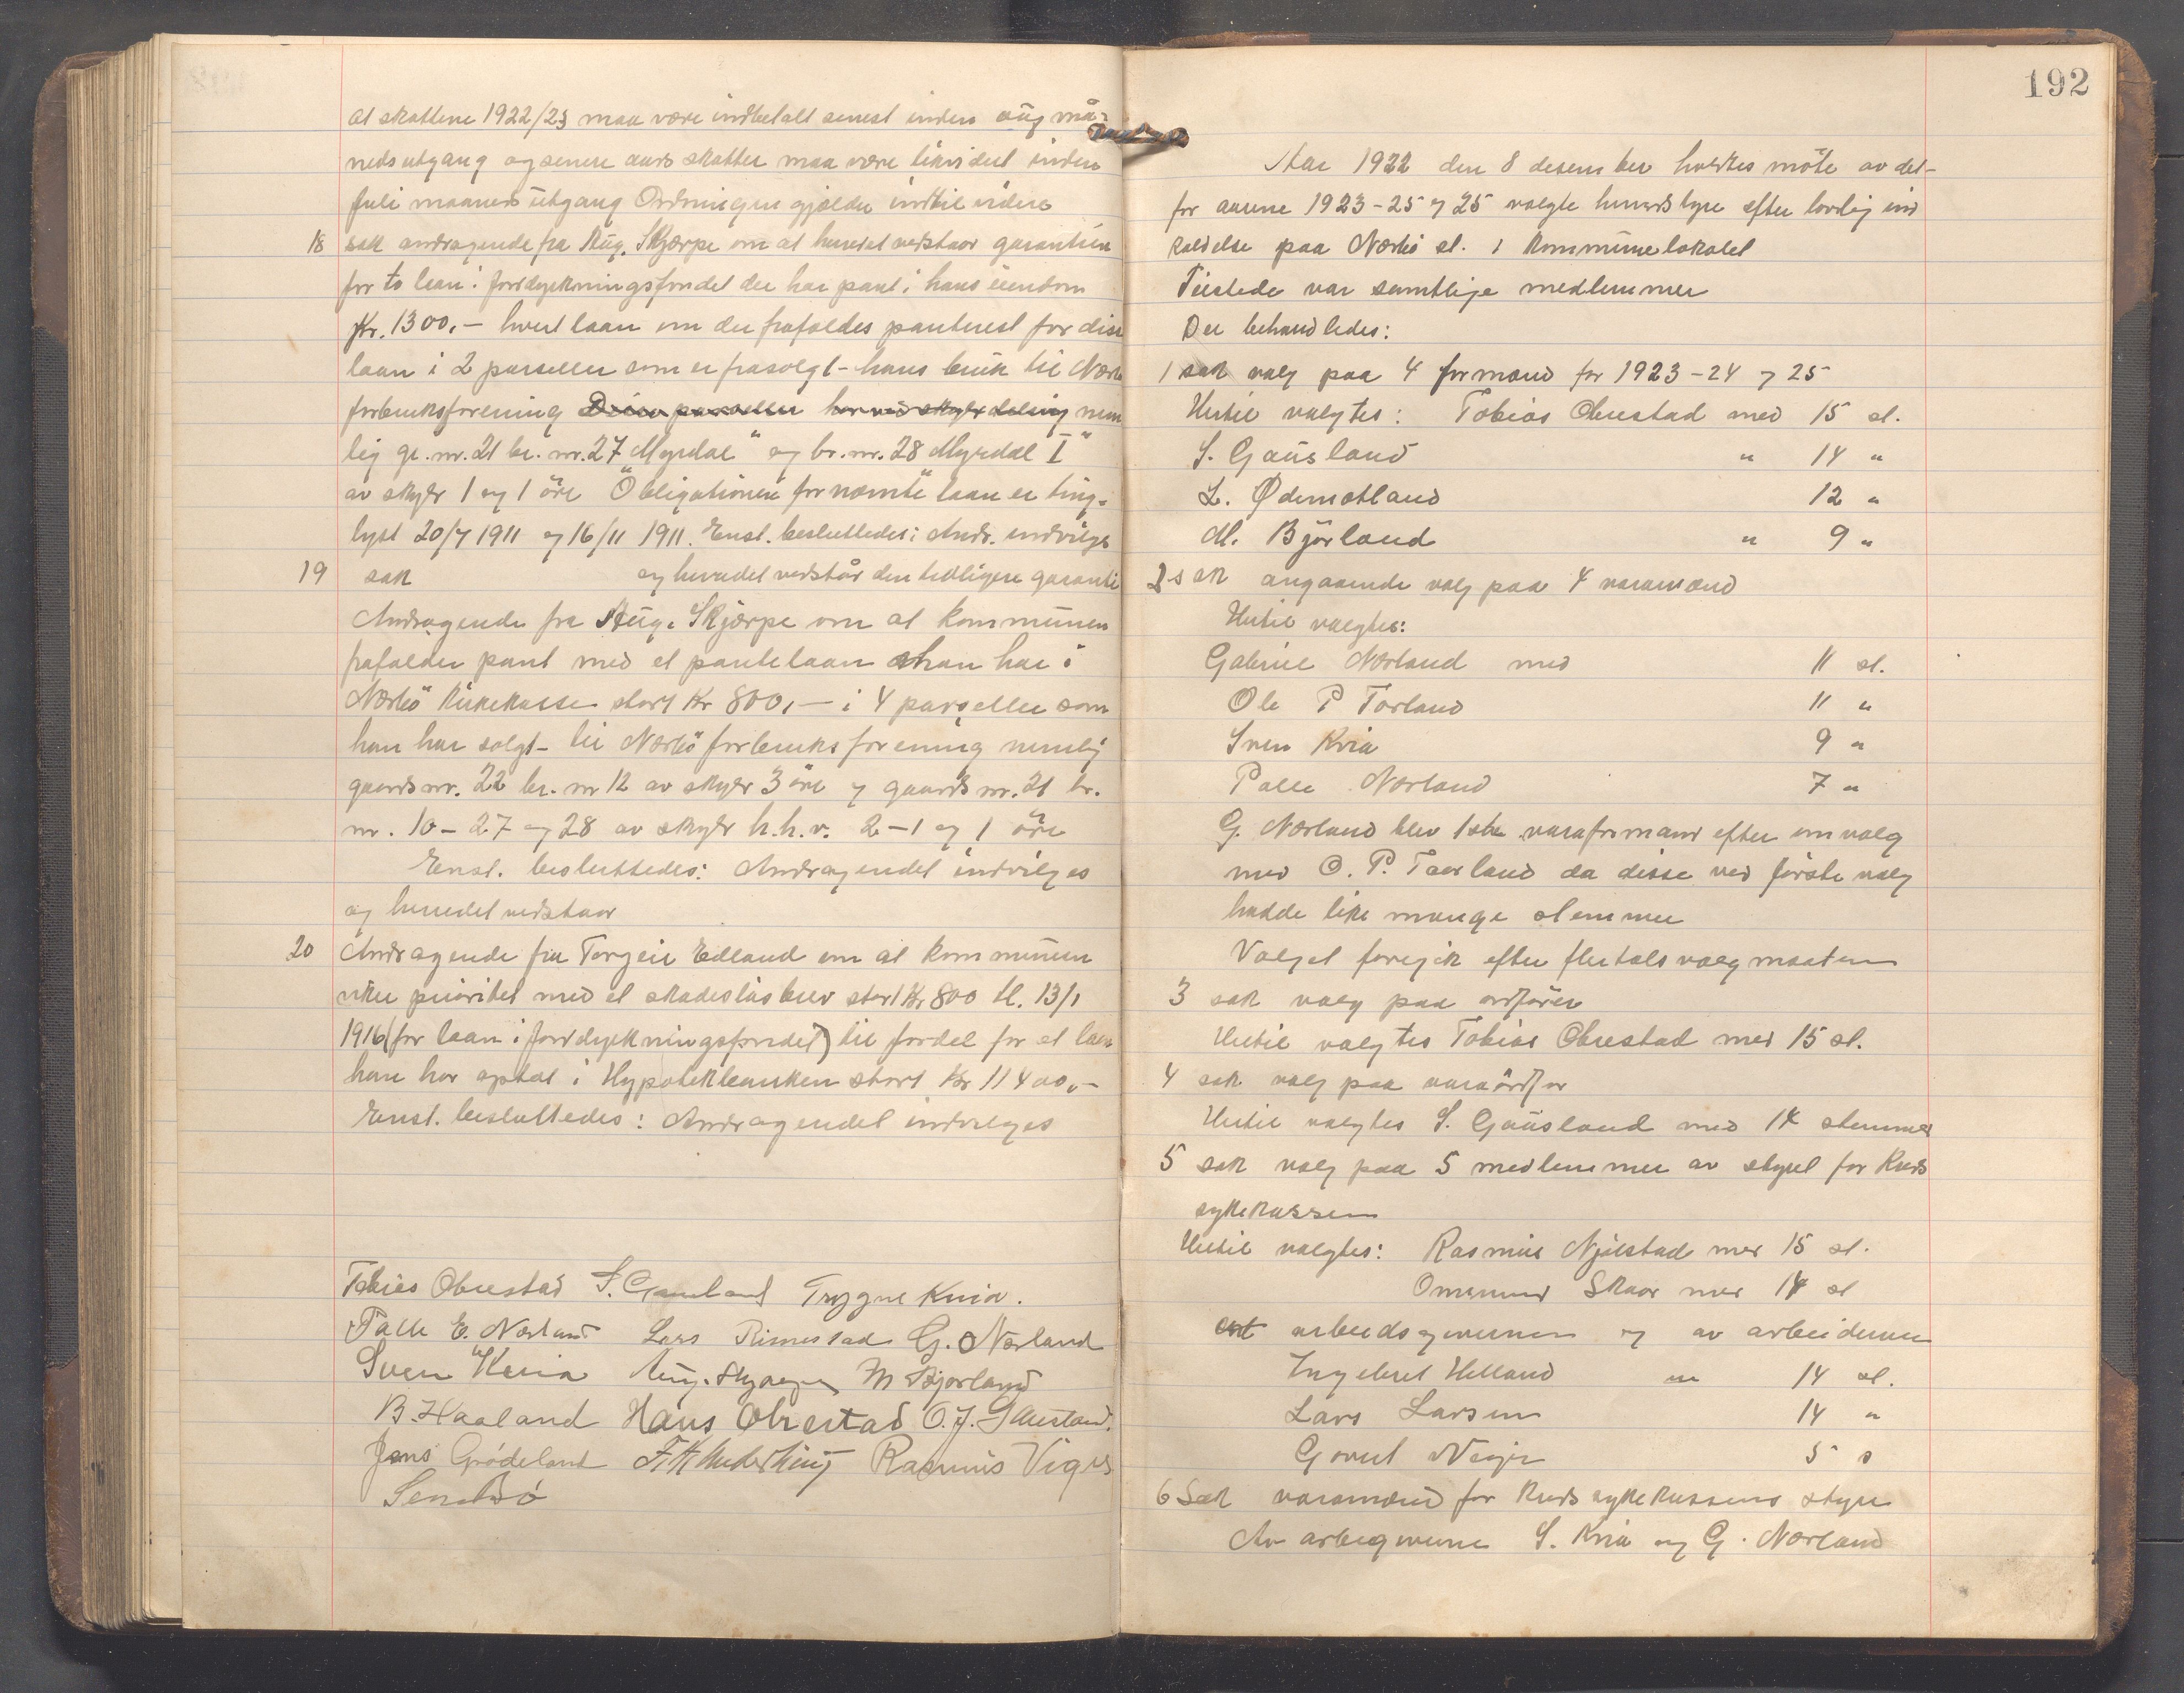 at skattene 1922/23 maa være indbetalt senest inden aug må-
neds utgang og senere aars skatter maa være likvidert inden
Juli maaneds utgang Ordningen gjælder indtil videre
18 sak andragende fra Aug. Skjærpe om at herredet vedstaar garantien
for to laan i jorddyrkningsfondet der har pant i hans eiendom
Kr. 1300,- hvert laan om der frafaldes panterest for disse
laan i 2 parseller som er frasolgt hans bruk til Nærbø
forbruksforening Disse parseller har ved skylddeling nem
lig gr. nr. 21 br. nr. 27 Myrdal" og br. nr. 28 Myrdal I"
av skyld 1 og 1 öre Obligationen for nævnte laan er ting-
lyst 20/7 1911 og 16/11 1911. Enst. besluttedes: Andr. indvilges
19 sak og herredet vedstår den tidligere garanti
Andragende fra Aug. Skjærpe om at kommunen
frafalder pant med et pantelaan han har i
Nærbö Kirkekasse stort Kr 800,- i 4 parseller som
han har solgt til Nærbö forbruksforening nemlig
gaards nr. 22 br. nr 12 av skyld 3 öre og gaards nr. 21 br.
nr. 10 - 27 og 28 av skyld h.h.v. 2 - 1 og 1 öre
Enst. besluttedes: Andragendet indvilges
og herredet vedstaar
20 Andragende fra Torgeir Edland om at kommunen
viker prioritet med et skadeslösbrev stort Kr 800 tl. 13/1
1916 (for laan i jorddyrkningsfondet) til fordel for et laan
han har optat i Hypotekbanken stort Kr 11400,-
Enst. besluttedes: Andragendet indvilges
Tobias Obrestad S. Gausland Trygve Kvia.
Palle E. Nærland Lars Rimestad G. Nærland
Sven Kvia Aug. Skjærpe M Bjorland
B. Haaland Hans Obrestad O. J. Gausland.
Jens Grödeland Rasmus Vigre
192
Aar 1922 den 8 desember holdtes möte av det
for aarene 1923-25 og 25 valgte herredstyre efter lovlig ind
kaldelse paa Nærbö st. i kommunelokalet
Tilstede var samtlige medlemmer
Der behandledes:
1 sak valg paa 4 formænd for 1923-24 og 25
Hertil valgtes: Tobias Obrestad med 15 st.
S. Gausland " 14 "
L. Ødemotland 12 "
M. Björland " 9 "
2 sak angaaende valg paa 4 varamænd
Hertil valgtes:
Gabriel Nærland med 11 st.
Ole P Torland 11 "
Sven Kvia 9 "
Palle Nærland 7 "
G. Nærland blev 1ste varaformand efter omvalg
med O. P. Taarland da disse ved förste valg
hadde like mange stemmer
Valget foregik efter flertalsvalgmaaten
3 sak valg paa ordförer
Hertil valgtes Tobias Obrestad med 15 st.
4 sak valg paa varaordför
Hertil valgtes S. Gausland med 14 stemmer
5 sak valg paa 5 medlemmer av styret for Kreds
sykekassen
Hertil valgtes: Rasmus Njölstad med 15 st.
Ommund Skaar med 14 st
arbeidsgiverne og av arbeiderne
Ingebret Helland " 14 st.
Lars Larsen 14 "
Govert 5 s
6 Sak varamænd for Kredssykekassens styre
Av arbeigiverne S. Kvia og G. Nærland